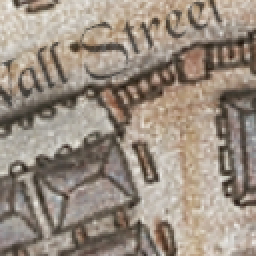 Wall Street